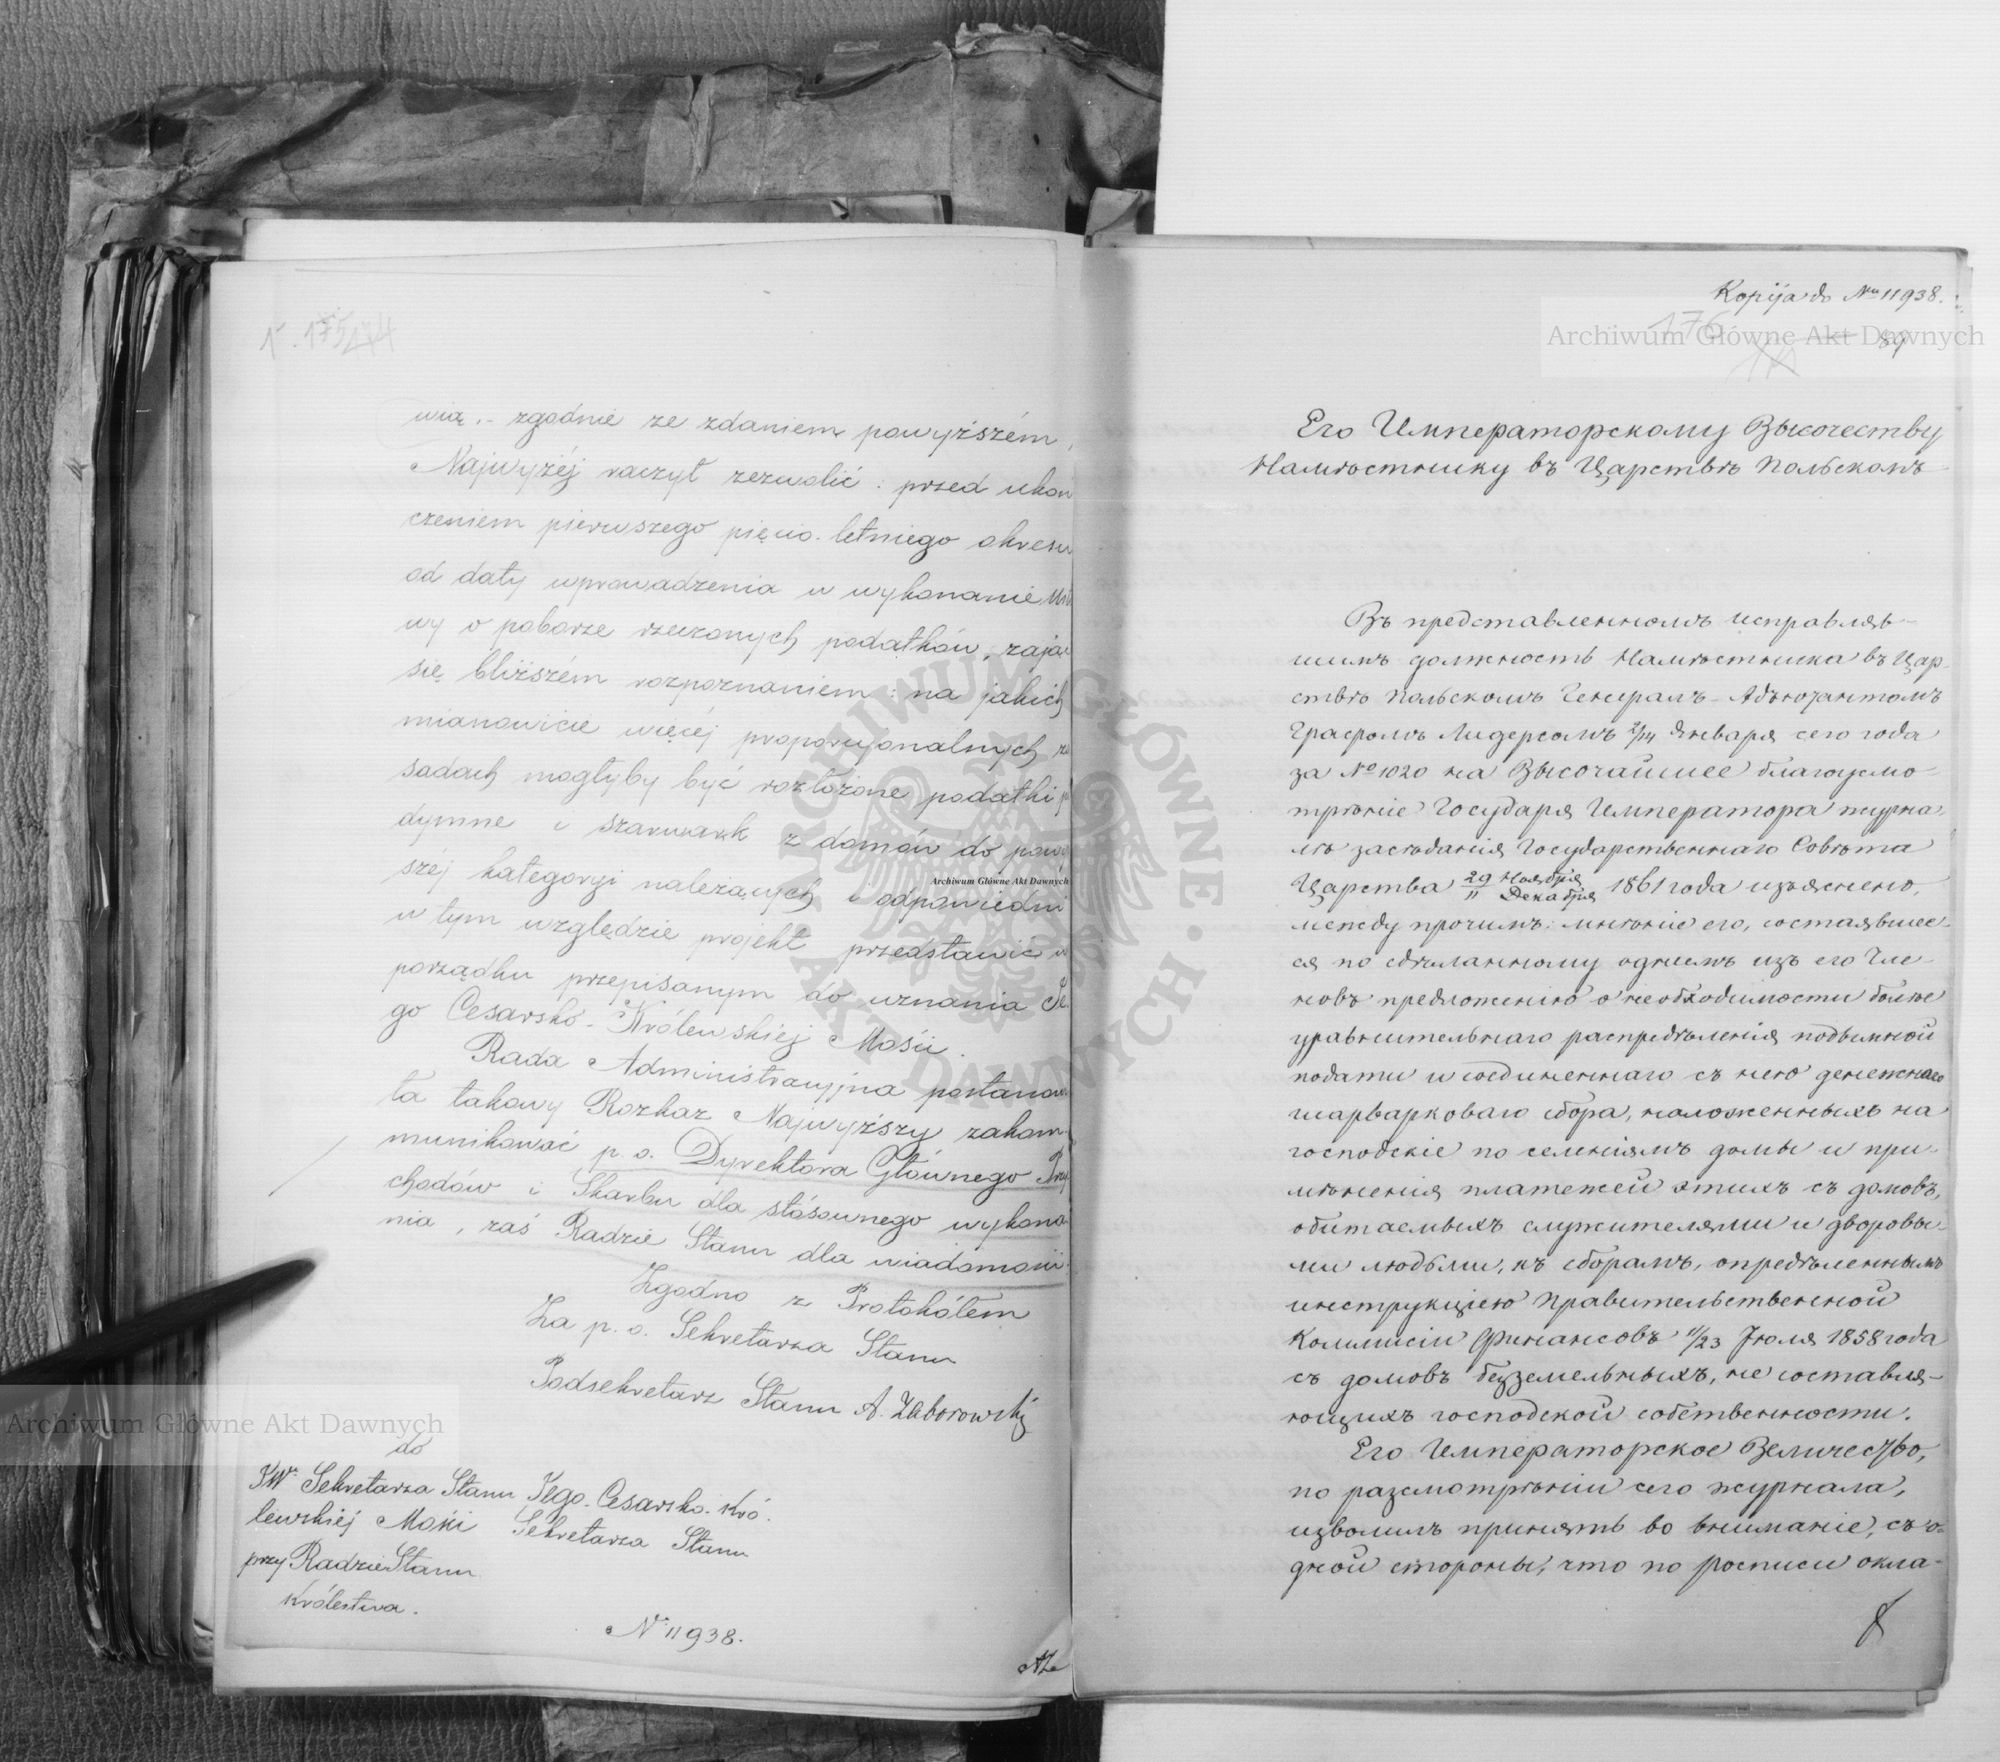 wią. – zgodnie ze zdaniem powyższém,
Najwyżéj raczył zezwolić: przed ukoń
czeniem pierwszego pięcio-letniego okresu
od daty wprowadzenia w wykonanie Usta
wy o poborze rzeczonych podatków, zająć
się bliższém rozpoznaniem: na jakich
mianowicie więcéj proporcyonalnych za
sadach mogłyby być rozłożone podatki po
dymne i szarwark z domów do powyż
széj kategoryi należących i odpowiedni
w tym względzie projekt przedstawić w
porządku przepisanym do uznania Je
go Cesarsko-Królewskiej Mości.
Rada Administracyjna postanowi
ła takowy Rozkaz Najwyższy zakom
munikować p. o. Dyrektora Głównego Przy
chodów i Skarbu dla stósownego wykona
nia, zaś Radzie Stanu dla wiadomości.
Zgodno z Protokółem
Za p. o. Sekretarza Stanu
Podsekretarz Stanu A. Zaborowski
do
JWo Sekretarza Stanu Jego Cesarsko-Kró-
lewskiéj Mości Sekretarza Stanu
przy Radzie Stanu
Królestwa.
No 11938.
AZ
Kopija do Nru 11938.
176
89
Его Императорскому Высочеству
Намѣстнику въ Царствѣ Польскомъ
Въ представленномъ исправляв-
шимъ должность Намѣстника въ Цар-
ствѣ Польскомъ Генералъ-Адъютантомъ
Графомъ Лидерсомъ 2/14 Января сего года
за № 1020 на Высочайшее благоусмо-
трѣніе Государя Императора журна-
лѣ засѣданія Государственнаго Совѣта
Царства 29 Ноября / 11 Декабря 1861 года изъяснено,
между прочимъ: мнѣніе его, состоявшее-
ся по сдѣланному однимъ изъ его Чле-
новъ предложенію о необходимости болѣе
уравнительнаго распредѣленія подымной
подати и соединеннаго съ нею денежнаго
шарварковаго сбора, наложенныхъ на
господскіе по селеніямъ домы и при-
мѣненія платежей этихъ съ домовъ,
обитаемыхъ служителями и дворовы-
ми людьми, къ сборамъ, опредѣленнымъ
инструкціею Правительственной
Коммисіи Финансовъ 11/23 Іюля 1858 года
съ домовъ безземельныхъ, не составля-
ющихъ господской собственности.
Его Императорское Величество,
по разсмотрѣніи сего журнала,
изволилъ принять во вниманіе, съ о-
дной стороны, что по росписи окла-
Archiwum Główne Akt Dawnych
Archiwum Główne Akt Dawnych
Archiwum Główne Akt Dawnych
ARCHIWUM GŁÓWNE AKT DAWNYCH